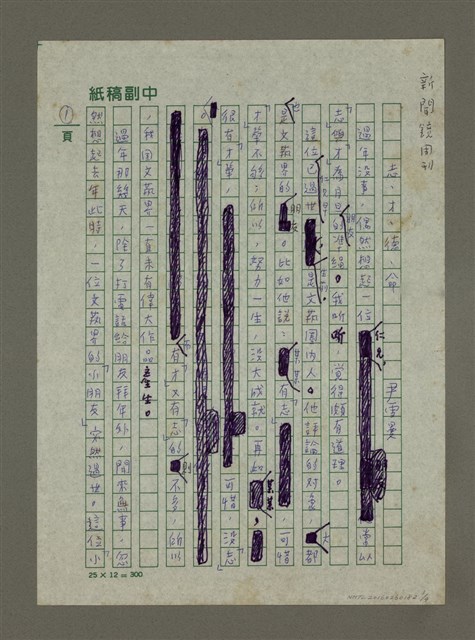 新聞鏡周刊
中副稿紙
志、才、德、命
尹雪曼
過年沒事，偶然想起一位仁兄，常以
「志與才」為月旦朋友的準繩。我听听，覺得頗有道理。
這位已過世是文藝圈內人。他評論的對象，大都
是文藝界的朋友。比如他說：某某有志，可惜
才學不夠；所以，努力一生，沒大成就。再如某某，
很有才學，可惜，沒「志」
有才又有志的，則不多，所以
，我国文藝界一直未有偉大作品產生。
過年那幾天，除了打電話給朋友拜年外，閒來無事，忽
然想起去年此時，一位文藝界的「小」朋友突然過世。這位「小
①
頁
25 × 12 = 300